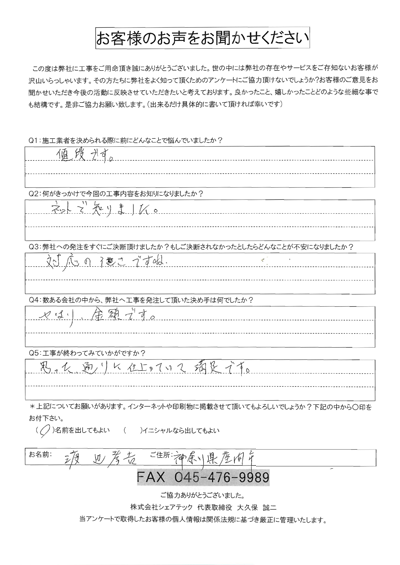 お客様のお声をお聞かせください
この度は弊社に工事をご用命頂き誠にありがとうございました。世の中には弊社の存在やサービスをご存知ないお客様が
沢山いらっしゃいます。その方たちに弊社をよく知って頂くためのアンケートにご協力頂けないでしょうか？お客様のご意見をお
聞かせいただき今後の活動に反映させていただきたいと考えております。良かったこと、嬉しかったことどのような些細な事で
も結構です。是非ご協力お願い致します。（出来るだけ具体的に書いて頂ければ幸いです）
Q1：施工業者を決められる際に前にどんなことで悩んでいましたか？
値段です。
Q2：何がきっかけで今回の工事内容をお知りになりましたか？
ネットで知りました。
Q3：弊社への発注をすぐにご決断頂けましたか？もしご決断されなかったとしたらどんなことが不安になりましたか？
対応の速さですね。
Q4：数ある会社の中から、弊社へ工事を発注して頂いた決め手は何でしたか？
やはり、金額です。
Q5：工事が終わってみていかがですか？
思った通りに仕上っていて満足です。
＊上記についてお願いがあります。インターネットや印刷物に掲載させて頂いてもよろしいでしょうか？下記の中から〇印を
お付下さい。
（〇）名前を出してもよい （ ）イニシャルなら出してもよい
お名前： 渡辺孝吉 ご住所：神奈川県座間市
FAX 045-476-9989
ご協力ありがとうございました。
株式会社シェアテック 代表取締役 大久保 誠二
当アンケートで取得したお客様の個人情報は関係法規に基づき厳正に管理いたします。